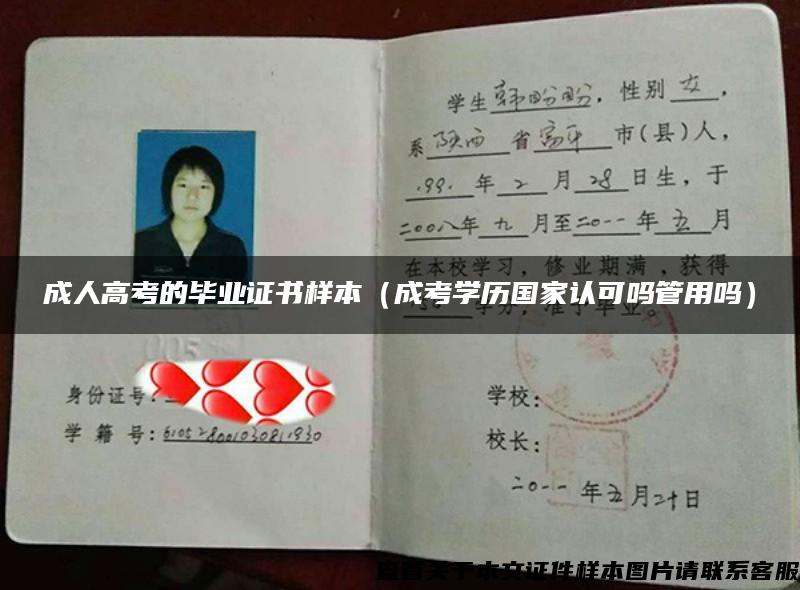 学生韩盼盼，性别女，
系陕西省富平市(县)人，
1991年2月28日生，于
二00八年九月至二0一一年五月
在本校学习，修业期满，获得
学分，准予毕业。
成人高考的毕业证书样本（成考学历国家认可吗管用吗）
身份证号：
学籍号：
学校：
校长：
二0一一年五月二十日
查看关于本文证件样本图片请联系客服